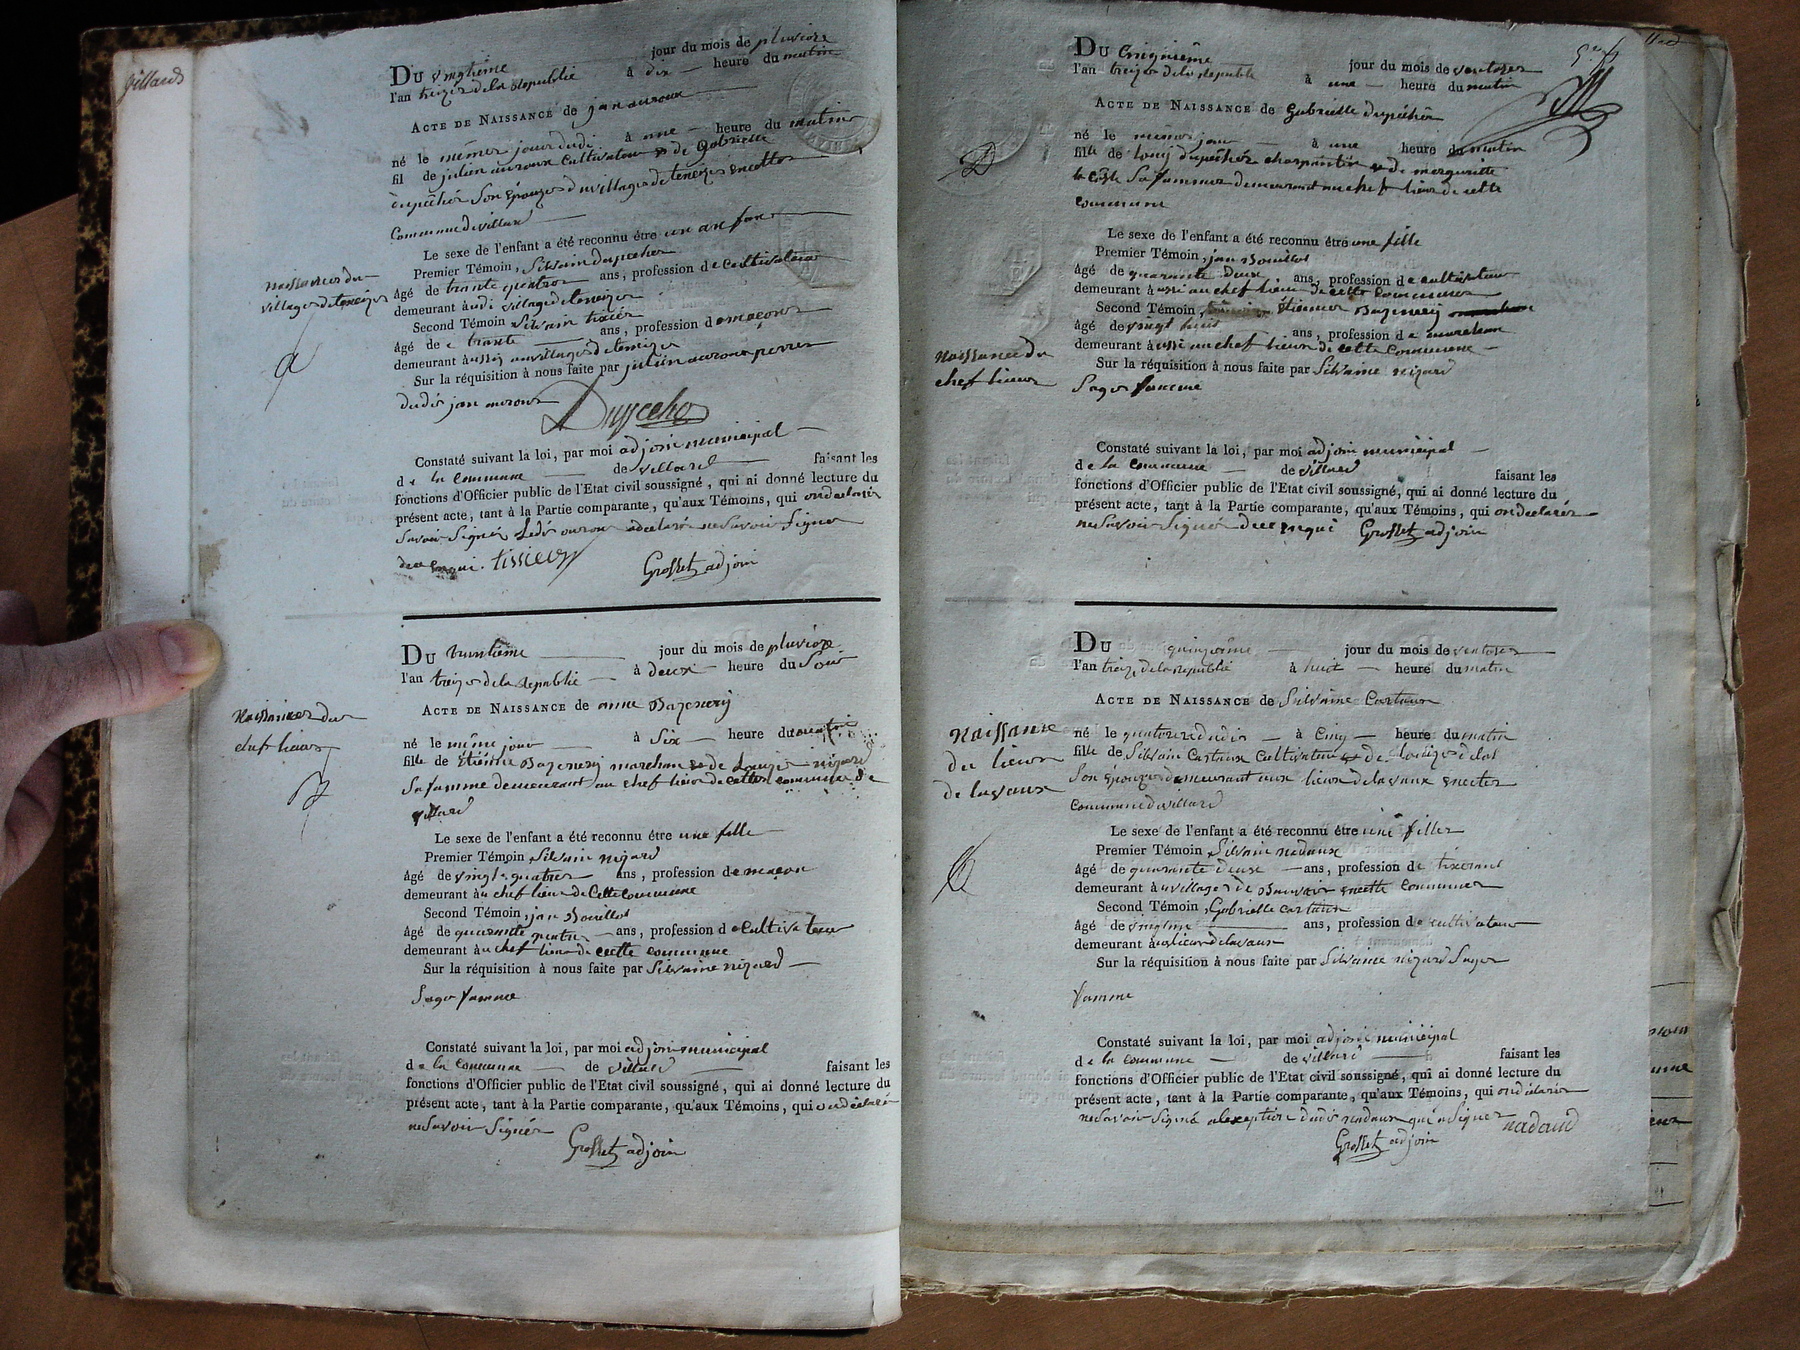 Du vingtième jour du mois de pluviose
l'an treize de la Republie à dix heure du matin
Acte de Naissance de jan auroux
né le même jour dudi à une heure du matin
fil de julien auroux Cultivatou et de Gabrielle
dupéchér Son Epouze du villages de teneizes encette
Commune de villard
Le sexe de l'enfant a été reconnu être un anfans
Premier Témoin, Silvain dupecher
âgé de trante quatror ans, profession de Cultivateur
naissances du
villages de teneizes
demeurant audi village de teneizes
Second Témoin Silvain tixiér
âgé de trante ans, profession de maçons
demeurant aussi au villages de teneizes
Sur la réquisition à nous faite par julien auroux perres
dudis jan auroux
Constaté suivant la loi, par moi adjoin municipal
de la Commune de villard faisant les
fonctions d'Officier public de l'Etat civil soussigné, qui ai donné lecture du
présent acte, tant à la Partie comparante, qu'aux Témoins, qui on declarér
Savoir Signér Ledis auroux a declaré ne Savoir Signer
tissier
Grosset adjoin
Du vuintième jour du mois de pluviose
l'an treizes de la Republie à deux heure du Soir
Naissances du
chef lieux
Acte de Naissance de anne Bazenery
né le même jour à Six heure du matin
fille de Etiènne Bazenery marchan et de Louize nizard
Sa famme demeurant au chef lieux de cettes commune de
villard
Le sexe de l'enfant a été reconnu être une fille
Premier Témoin Silvain nizard
âgé de vingt quatres ans, profession de maçon
demeurant au chef lieux de Cette Commune
Second Témoin, jan Bouillot
âgé de quarante quatre ans, profession de Cultivateur
demeurant au chef lieux de cette commune
Sur la réquisition à nous faite par Silvaine nizard
Sage famme
Constaté suivant la loi, par moi adjoin municipal
de la Commune de villard faisant les
fonctions d'Officier public de l'Etat civil soussigné, qui ai donné lecture du
présent acte, tant à la Partie comparante, qu'aux Témoins, qui on déclarér
ne Savoir Signér
Grosset adjoin
Du Cinqième jour du mois de ventoses
l'an treizes de la Republi à une heure du matin
Acte de Naissance de Gabrielle dupéchér
né le même jour à une heure du matin
fille de Louis dupéchér charpantiér et de margueritte
la coste Sa famme demeurant au chef lieux de cette
commune
Le sexe de l'enfant a été reconnu être une fille
Premier Témoin, jan Bouillot
âgé de quarante deux ans, profession de cultivateur
demeurant aussi au chef lieux de cette Commune
Second Témoin, Étienne Bazenery
âgé de vingt huit ans, profession de marchan
Naissance du
chef lieux
demeurant aussi au chef lieux de cette Commune
Sur la réquisition à nous faite par Silvaine nizard
Sage famme
Constaté suivant la loi, par moi adjoin municipal
de la Commune de villard faisant les
fonctions d'Officier public de l'Etat civil soussigné, qui ai donné lecture du
présent acte, tant à la Partie comparante, qu'aux Témoins, qui on déclarér
ne Savoir Signér Grosset adjoin
Du quinzième jour du mois de ventoses
l'an treiz de la Republie à huit heure du matin
Acte de Naissance de Silvaine Cartaux
Naissanse
du lieux
de lavaux
né le quatorze dudis à Cinq heure du matin
fille de Silvain Cartaux Cultivateur et de
Son Epouze demeurant aux lieux de lavaux encette
Commune de villard
Le sexe de l'enfant a été reconnu être une filles
Premier Témoin Silvain nadaux
âgé de quarante deux ans, profession de tixerant
demeurant au village de Bauvais encette Commune
Second Témoin, Gabrielle cartaux
âgé de ans, profession de cultivateur
demeurant au lieux de lavaux
Sur la réquisition à nous faite par Silvaine nizard Sages
famme
Constaté suivant la loi, par moi adjoin municipal
de la commune de villard faisant les
fonctions d'Officier public de l'Etat civil soussigné, qui ai donné lecture du
présent acte, tant à la Partie comparante, qu'aux Témoins, qui on déclarér
ne Savoir Signé alexeption dudis nadaux qui a Signer nadaud
Grosset adjoin